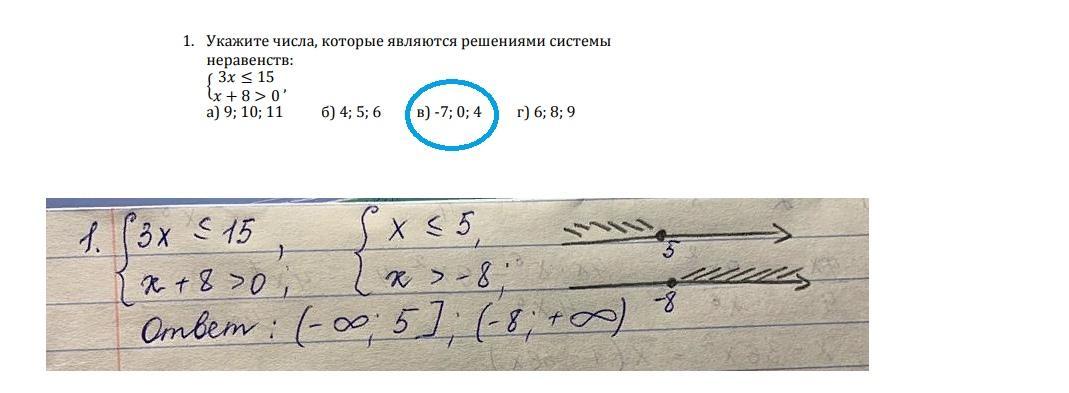 1. Укажите числа, которые являются решениями системы
неравенств:
{ 3x ≤ 15
{ x + 8 > 0 ,
а) 9; 10; 11 б) 4; 5; 6 в) -7; 0; 4 г) 6; 8; 9
1. { 3x ≤ 15 , { x ≤ 5, 5
{ x + 8 > 0 ; { x > -8; -8
Ответ: (-∞; 5]; (-8; +∞)